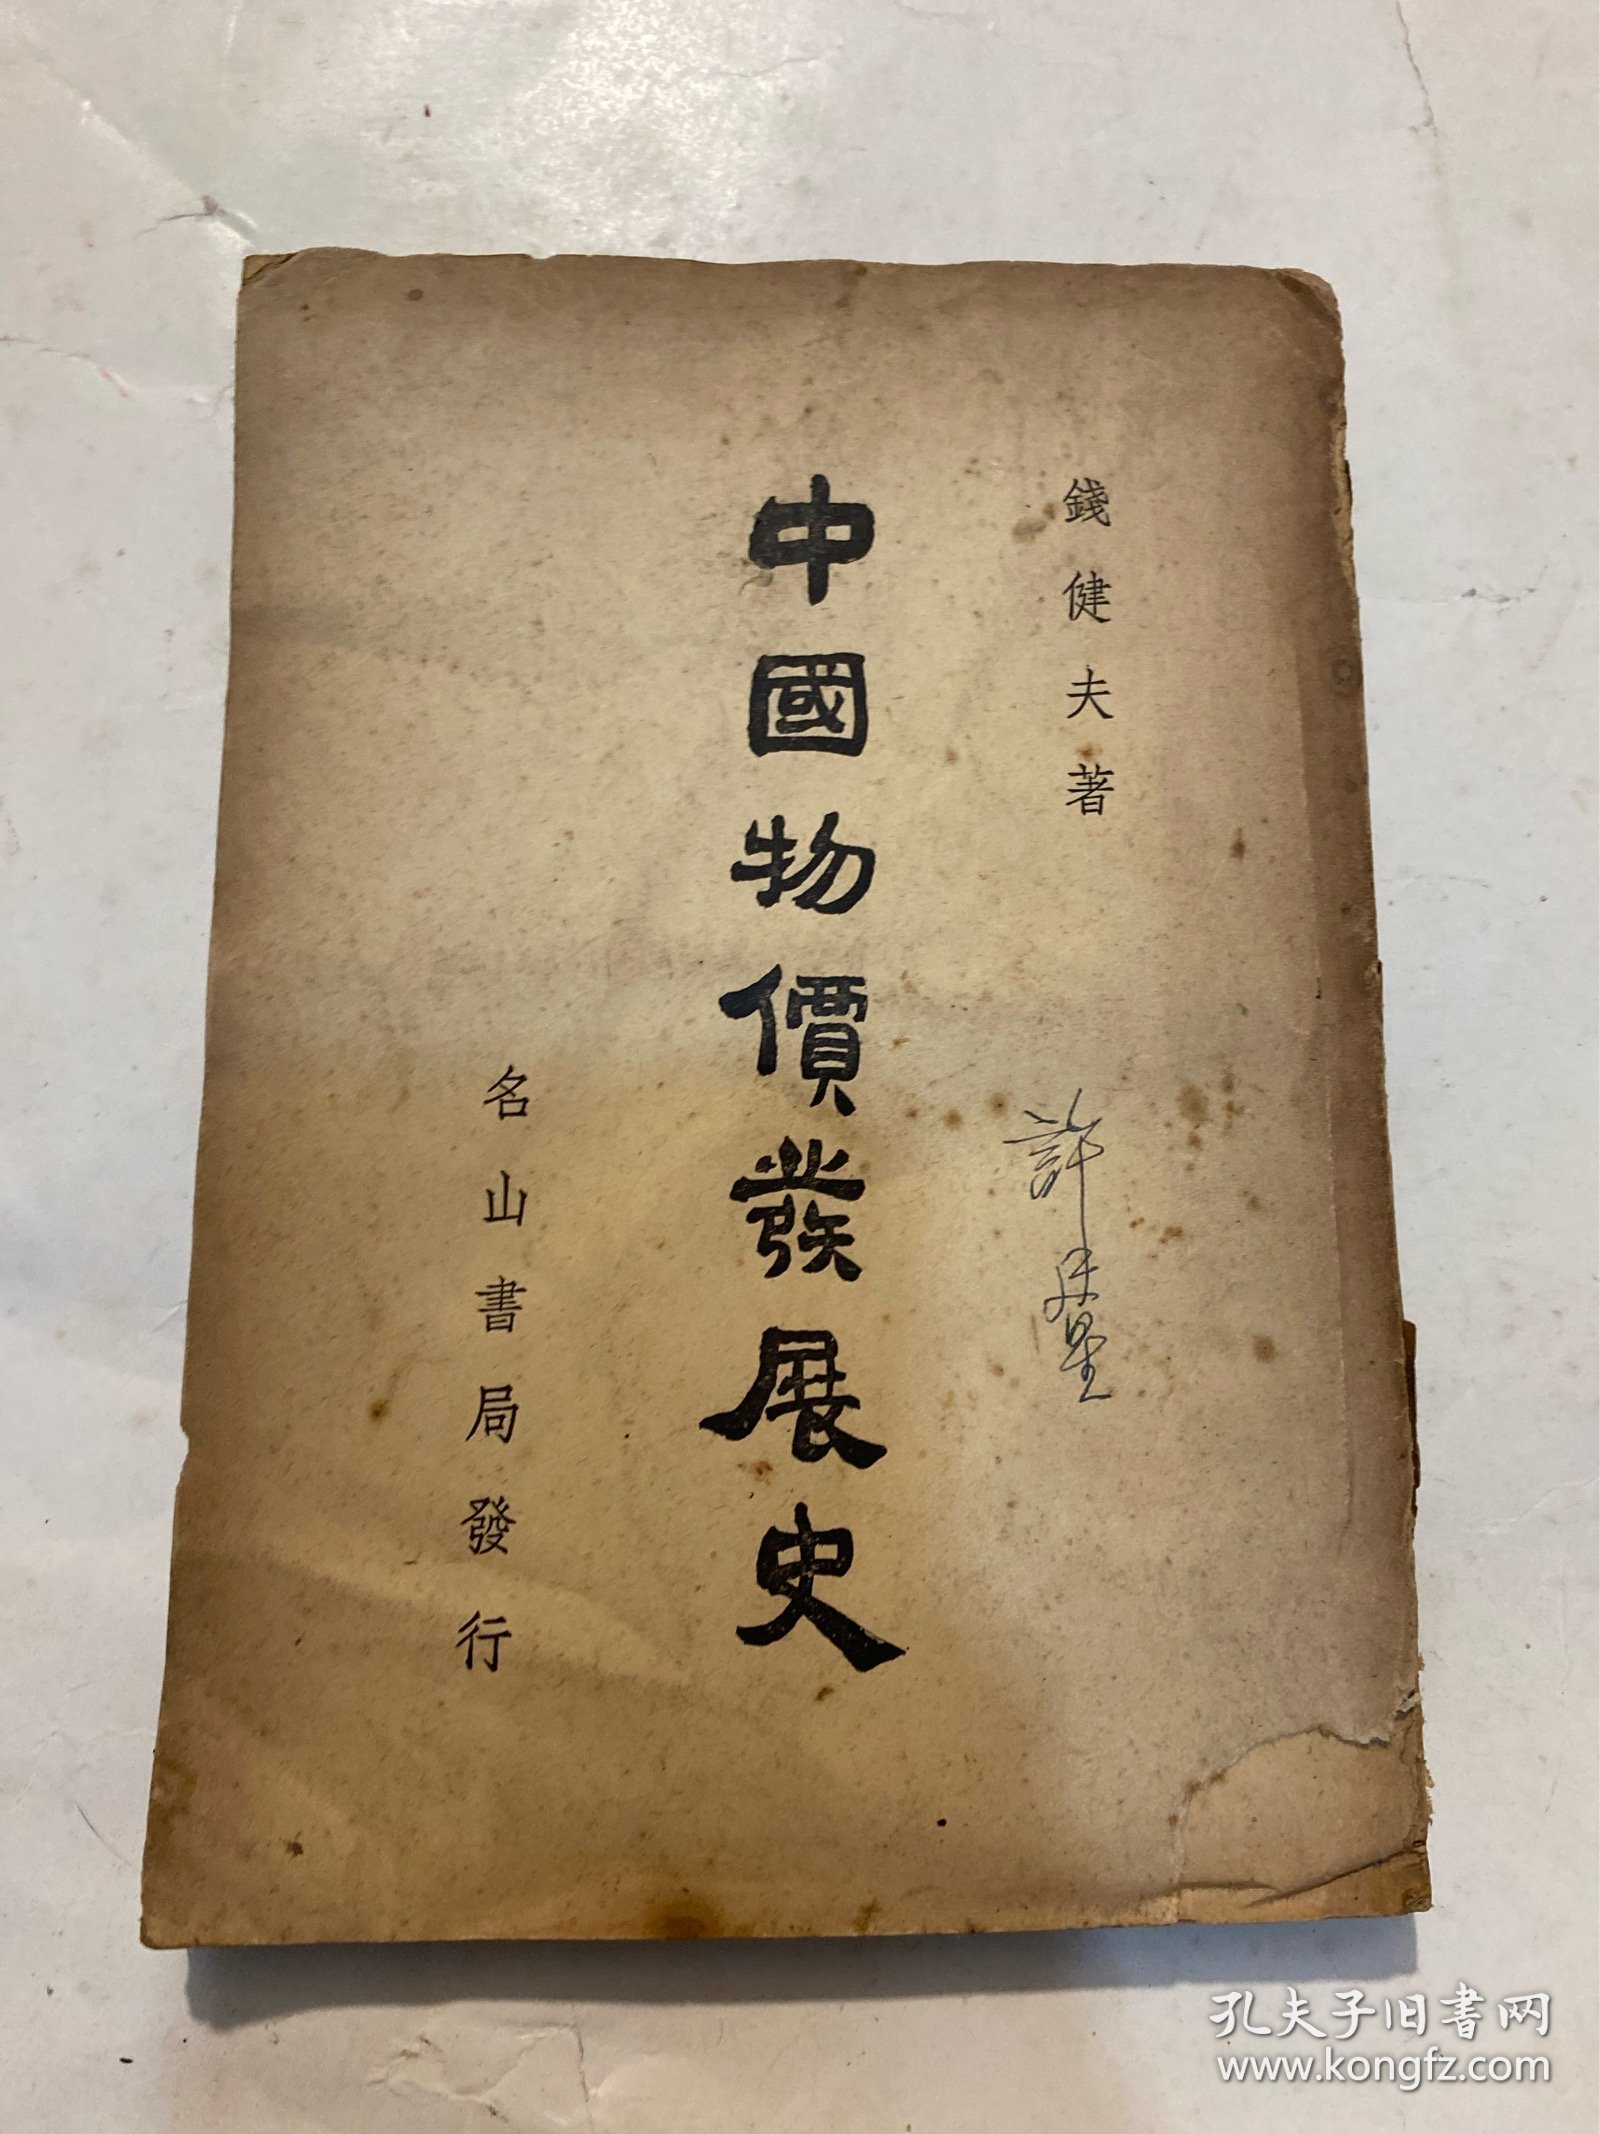 錢健夫著
許
中國物價發展史
名山書局發行
孔夫子旧書网
www.kongfz.com